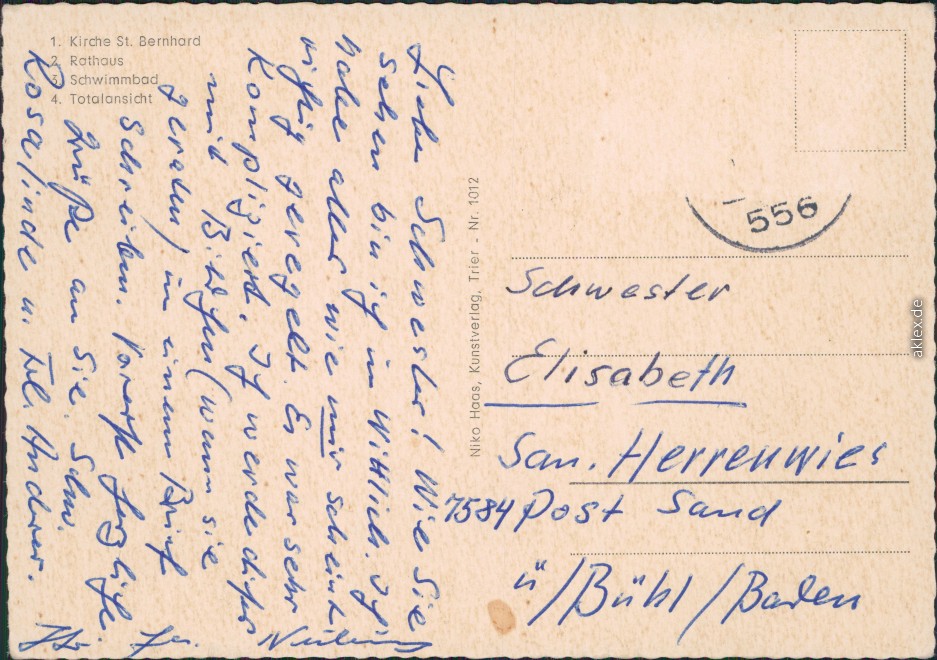 1. Kirche St. Bernhard
2. Rathaus
3. Schwimmbad
4. Totalansicht
Liebe Schwester! Wie Sie
sehen bin ich in Wittlich. Ich
habe alles wie mir scheint
richtig geregelt. Es war sehr
Kompliziert. Ich werde
mit Bildern (wenn sie
geraten) in einem Brief
schreiben. Vorerst herzliche
Grüße an Sie. Schw.
Rosalinde u. Frl. Anderer.
Ihr Hr.
Niko Haas, Kunstverlag, Trier - Nr. 1012
556
Schwester
Elisabeth
San. Herrenwies
7584 Post Sand
ü/Bühl/Baden
aklex.de